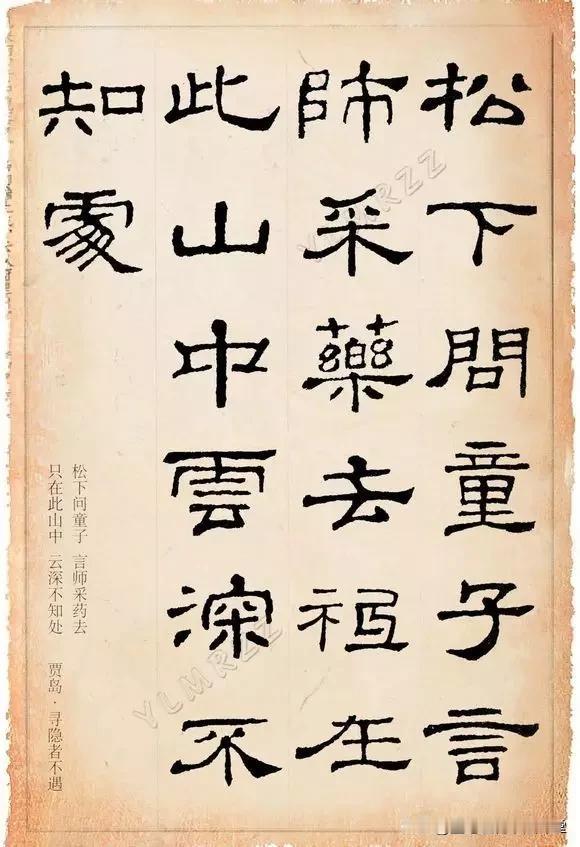 松下問童子言
師采藥去祗在
此山中雲深不
知處
松下问童子 言师采药去
只在此山中 云深不知处 贾岛·寻隐者不遇
YLMRZZ
YLMRZZ